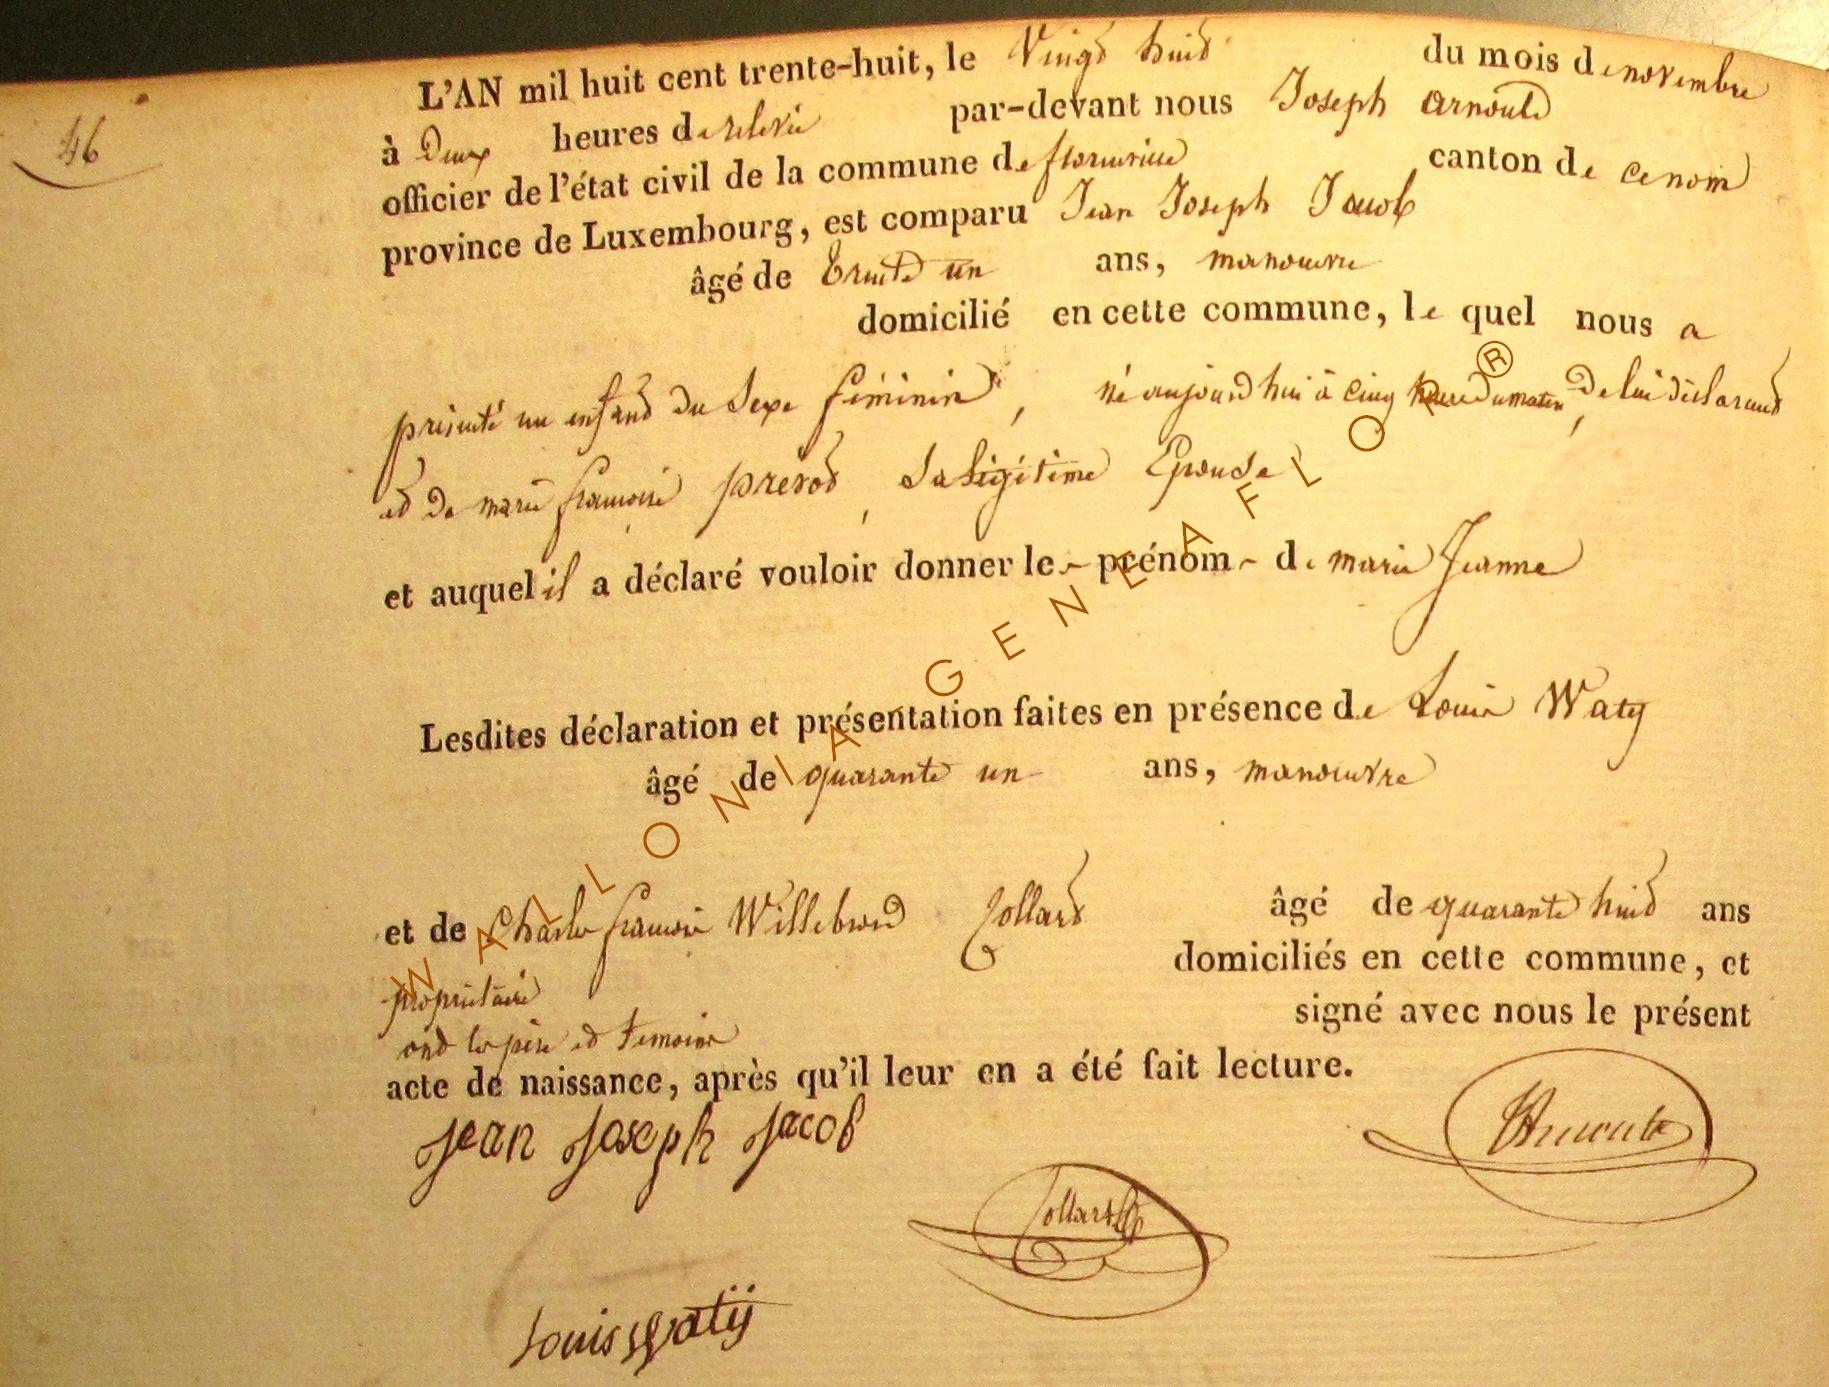 46
L'AN mil huit cent trente-huit, le Vingt huit du mois de novembre
à Deux heures de relevée par-devant nous Joseph Arnould
officier de l'état civil de la commune de florenville canton de
province de Luxembourg, est comparu Jean Joseph Jacob
âgé de Trente un ans, manœuvre
domicilié en cette commune, le quel nous a
présenté un enfant du Sexe féminin, né aujourd hui à cinq heure du matin, De lui déclarant
et De marie françoise prévot, Sa Légitime Epouse
et auquel il a déclaré vouloir donner le - prénom - de marie Jeanne
Lesdites déclaration et présentation faites en présence de Louis Waty
âgé de quarante un ans, manœuvre
et de Charles françois Willebrord Collart âgé de quarante huit ans
propriétaire domiciliés en cette commune, et
ont les père et témoins signé avec nous le présent
acte de naissance, après qu'il leur en a été fait lecture.
Jean Joseph Jacob
Collart
Louis Watÿ
WALLONIA GENEAFLOR ®